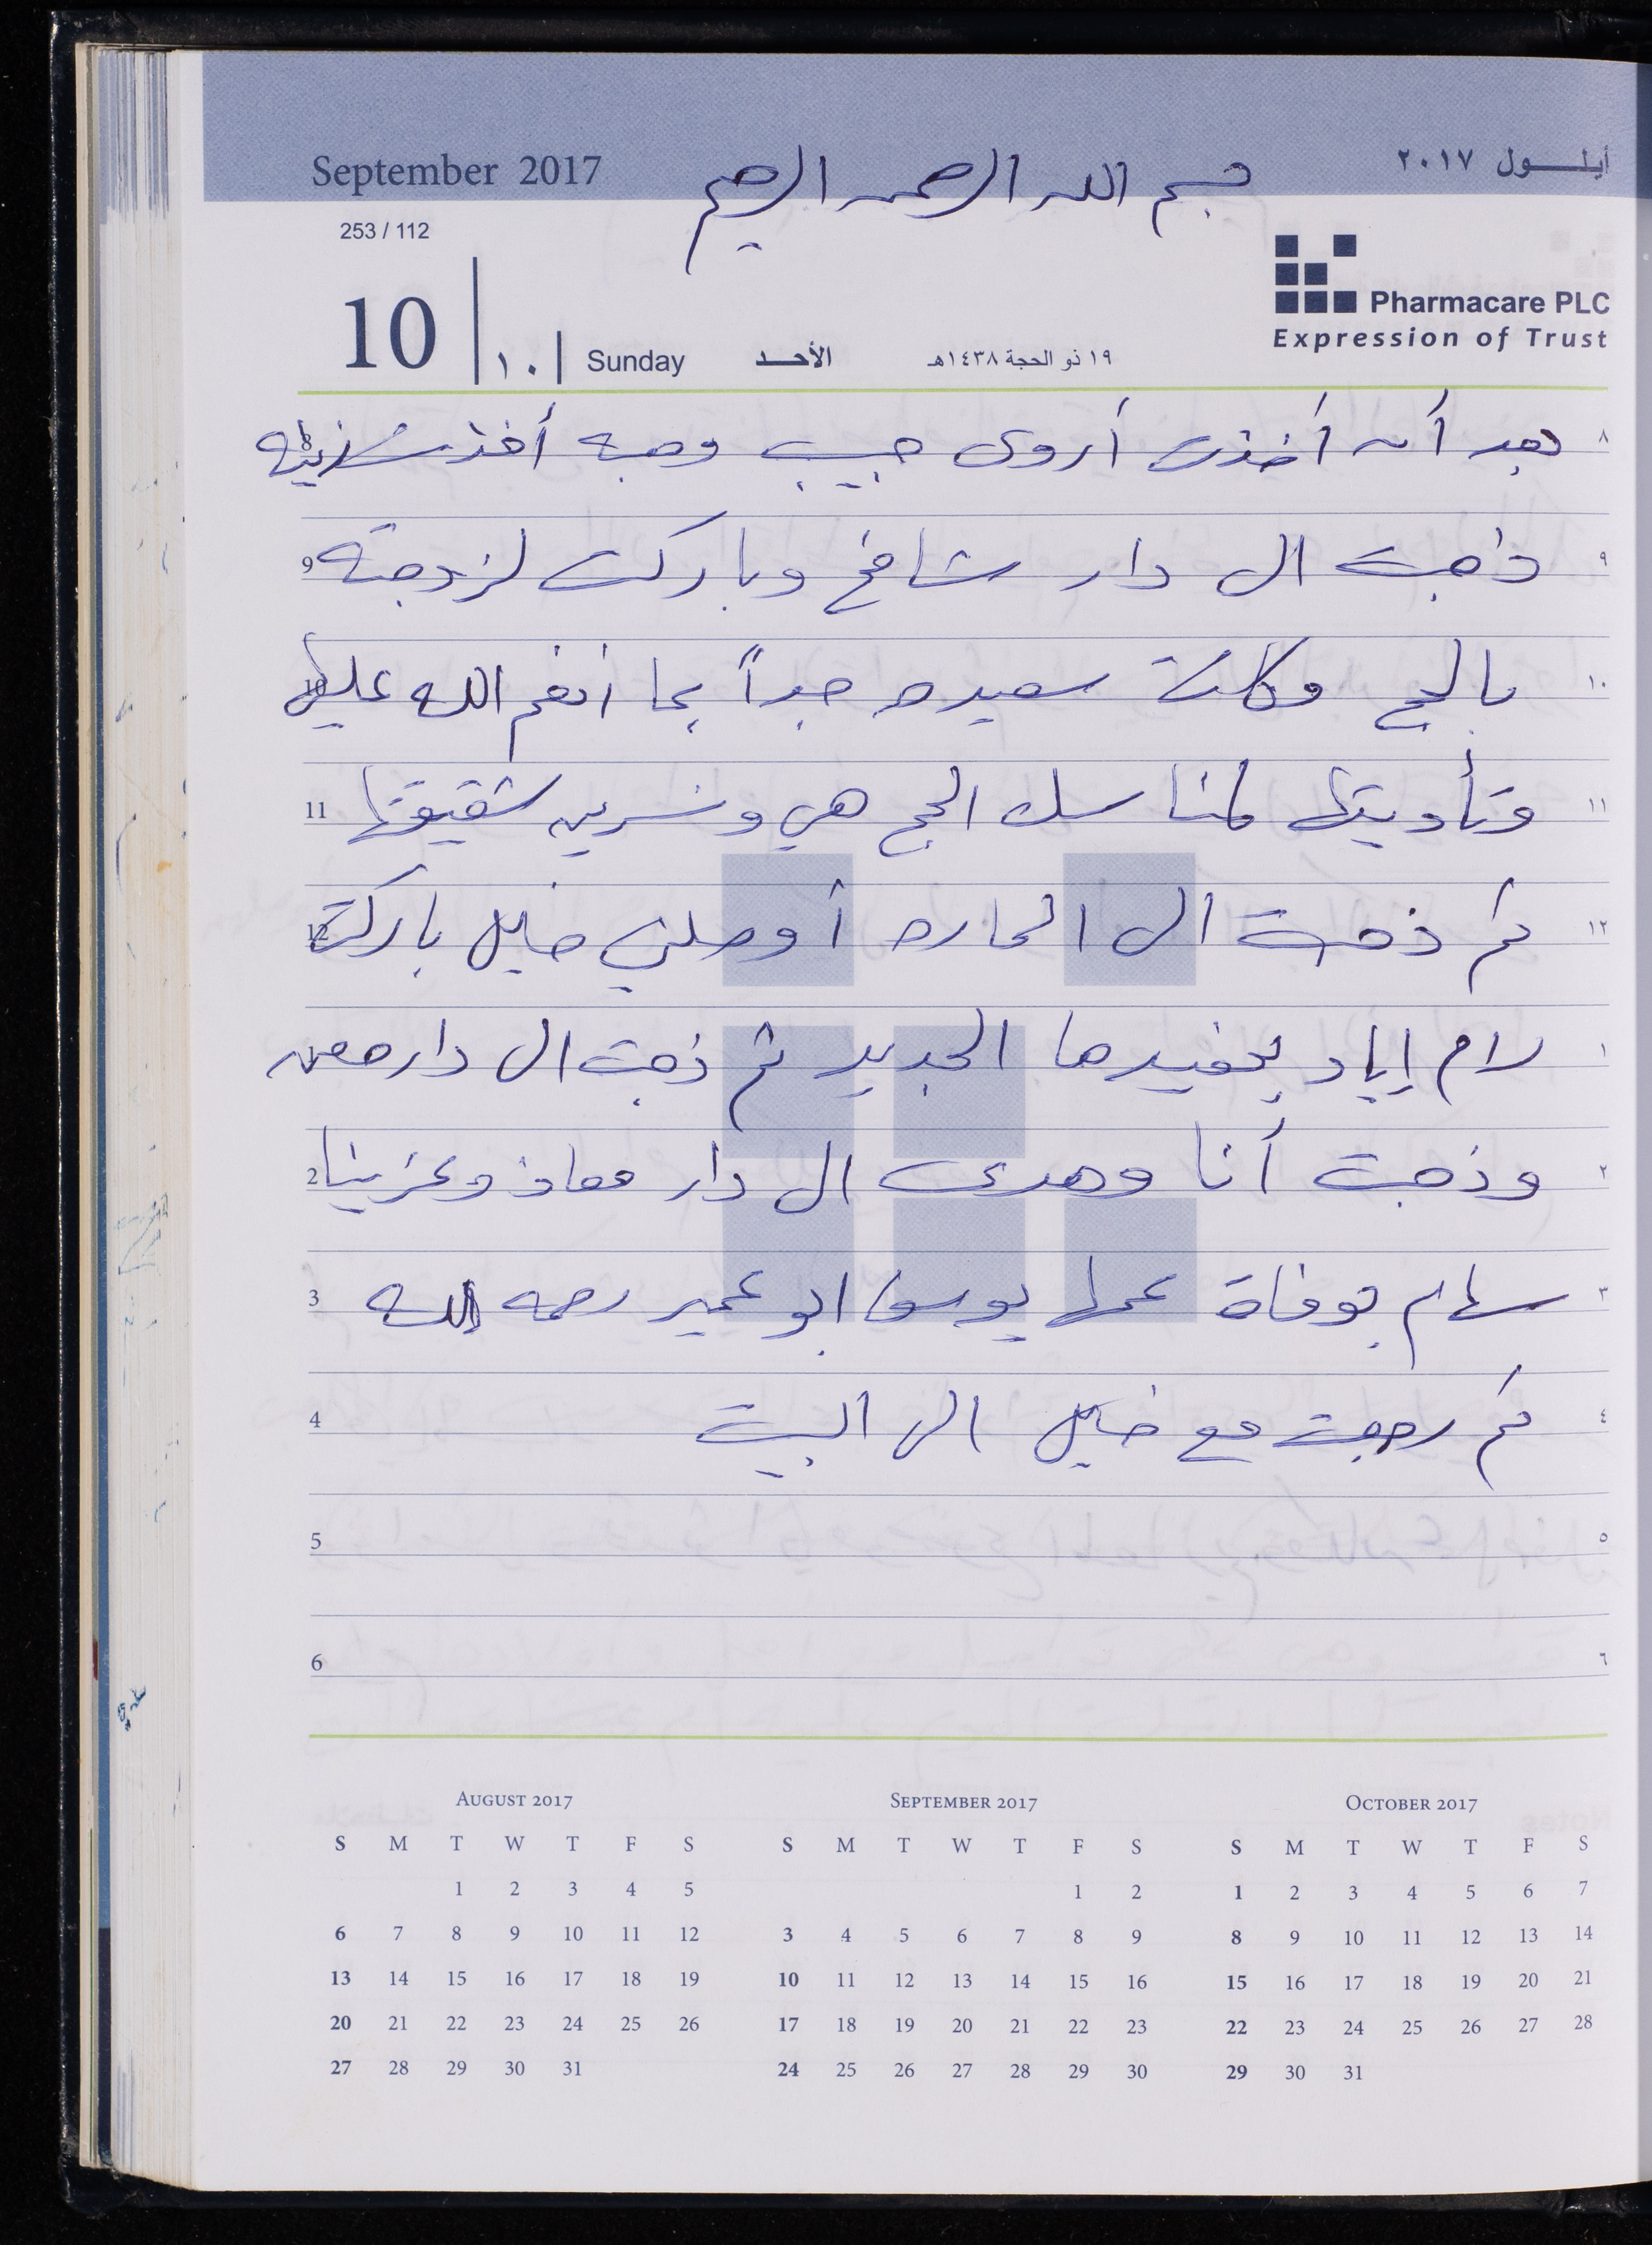 September 2017
بسم الله الرحمن الرحيم
أيلول ٢٠١٧
253 / 112
10 ١٠ Sunday الأحد ١٩ ذو الحجة ١٤٣٨هـ
Pharmacare PLC
Expression of Trust
٨ بعد أن أخذت أروى حبيب وجبه أخذ 8
٩ ذهبت الى دار شامخ وباركت لزوجته 9
١٠ بالحج وكانت سعيده جداً بما انعم الله عليها 10
١١ وتأديتها لمناسك الحج هي ونسرين شقيقتها 11
١٢ ثم ذهبت الى الحاره أوصلني خليل باركت 12
١ لام إياد بحفيدها الجديد ثم ذهبت الى دار معن
٢ وذهبت أنا وهدى الى دار معاذ وعزينا 2
٣ سهام بوفاة عمها يوسف ابو عمير رحمه الله 3
٤ ثم رجعت مع خليل الى البيت 4
٥ 5
٦ 6
August 2017
S M T W T F S
1 2 3 4 5
6 7 8 9 10 11 12
13 14 15 16 17 18 19
20 21 22 23 24 25 26
27 28 29 30 31
September 2017
S M T W T F S
1 2
3 4 5 6 7 8 9
10 11 12 13 14 15 16
17 18 19 20 21 22 23
24 25 26 27 28 29 30
October 2017
S M T W T F S
1 2 3 4 5 6 7
8 9 10 11 12 13 14
15 16 17 18 19 20 21
22 23 24 25 26 27 28
29 30 31